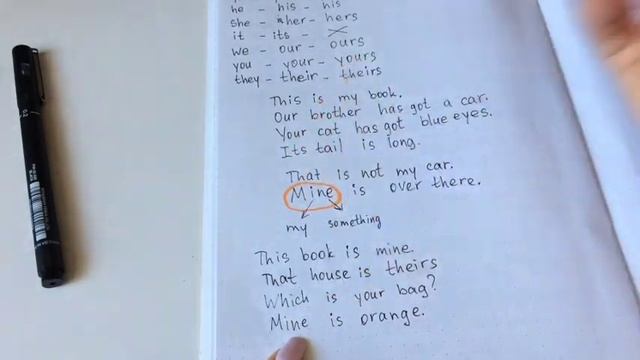 he - his - his
she - her - hers
it - its -
we - our - ours
you - your - yours
they - their - theirs
This is my book.
Our brother has got a car.
Your cat has got blue eyes.
Its tail is long.
That is not my car.
Mine is over there.
my something
This book is mine.
That house is theirs
Which is your bag?
Mine is orange.